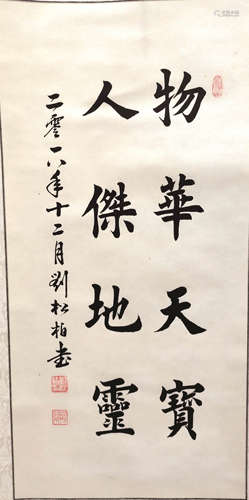 物華天寶
人傑地靈
二零一八年十二月劉松柏書